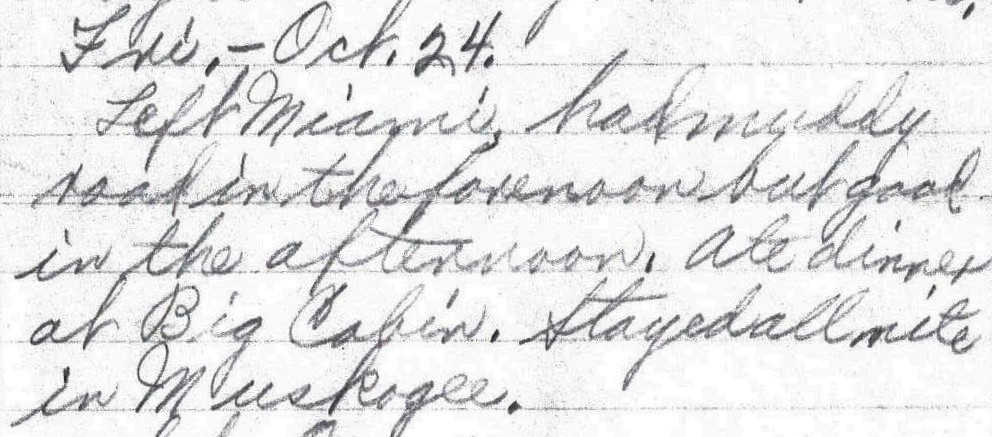 Fri. - Oct. 24.
Left Miami, had muddy
road in the forenoon but good
in the afternoon. Ate dinner
at Big Cabin. Stayed all nite
in Muskogee.